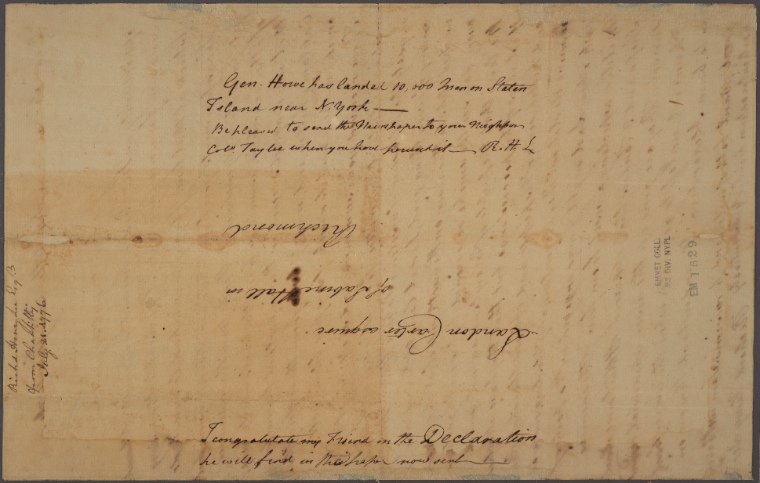 Gen. Howe has landed 10,000 men on Staten
Island near N. York —
Be pleased to send the Newspaper to your Neighbor
Colo. Tayloe when you have perused it — R. H. L
Landon Carter esquire
of Sabine Hall in
Richmond
I congratulate my Friend on the Declaration
he will find in the paper now sent —
Richd. Henry Lee Esqr.
from
July 21. 1776
EMMET COLL.
MS. DIV. NYPL
EM 1629